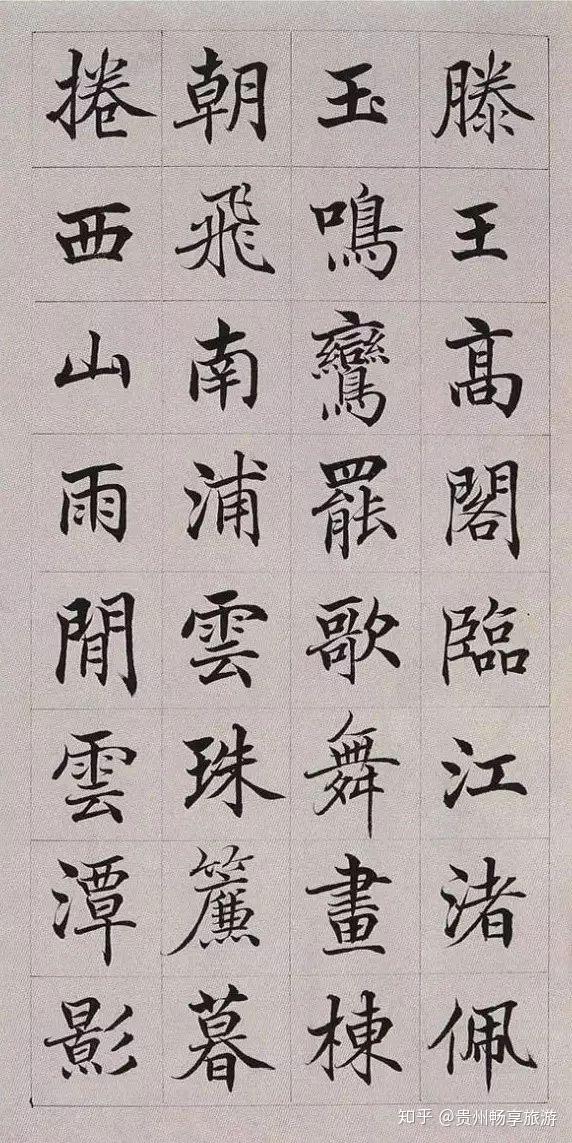 滕王高閣臨江渚佩
玉鳴鸞罷歌舞畫棟
朝飛南浦雲珠簾暮
捲西山雨閒雲潭影
知乎 @贵州畅享旅游